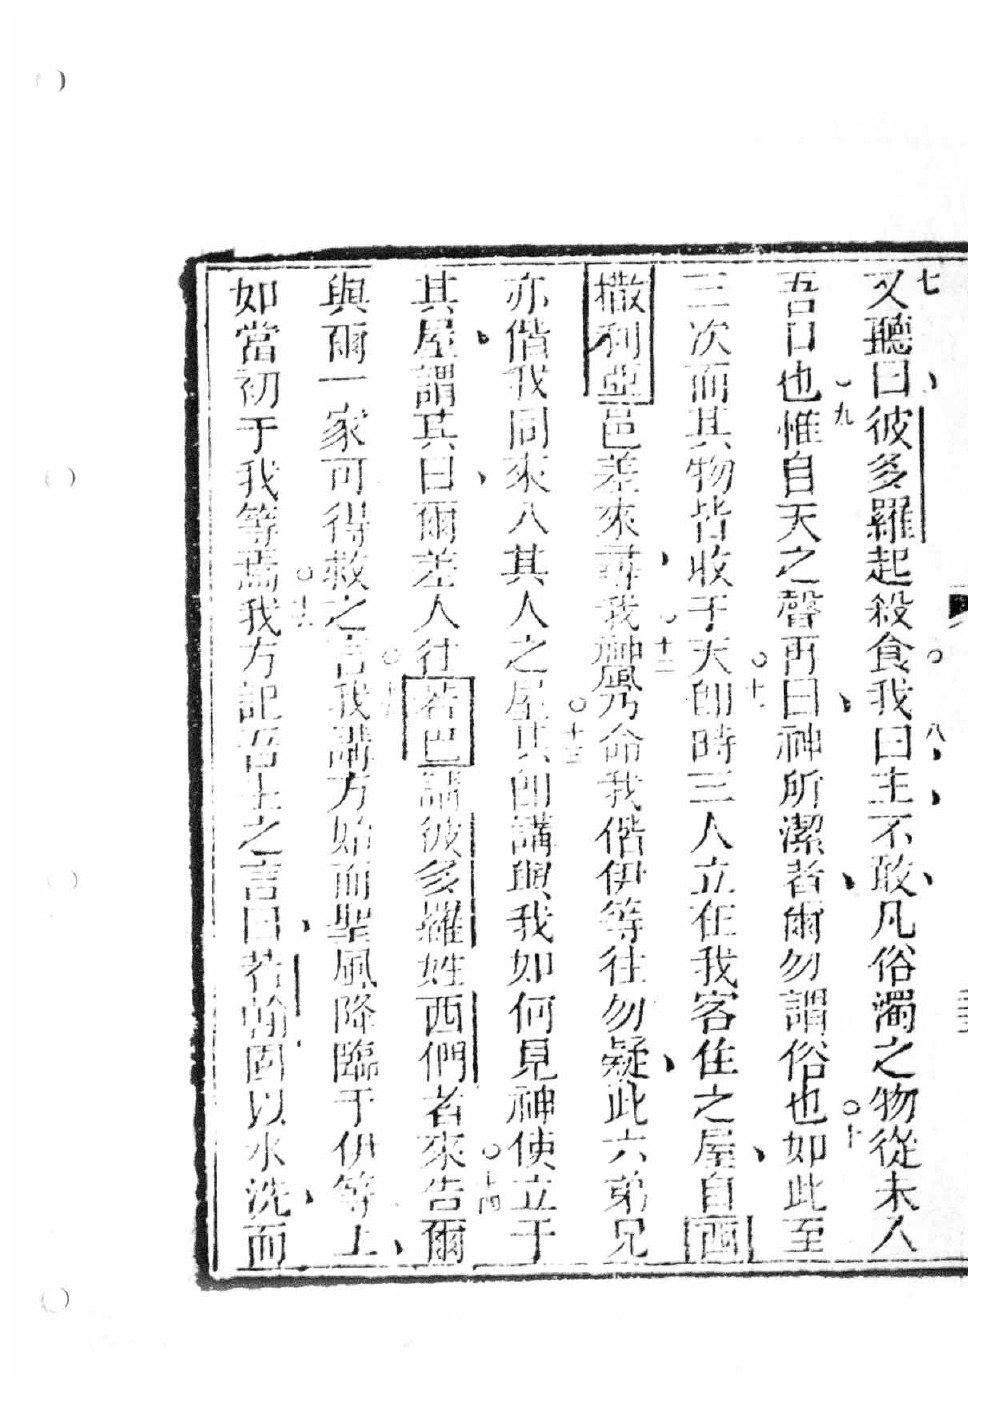 七
又聽曰彼多羅起殺食我曰主不敢凡俗濁之物從未入
八
吾口也惟自天之聲再曰神所潔者爾勿謂俗也如此至
九
十
三次而其物皆收于天卽時三人立在我客住之屋自西
十一
撒利亞邑差來尋我神風乃命我偕伊等往勿疑此六弟兄
十二
亦偕我同來入其人之屋其卽講與我如何見神使立于
十三
其屋謂其曰爾差人往若巴請彼多羅姓西們者來告爾
十四
與爾一家可得救之言我講方始而聖風降臨于伊等上
如當初于我等焉我方記吾主之言曰若翰固以水洗而